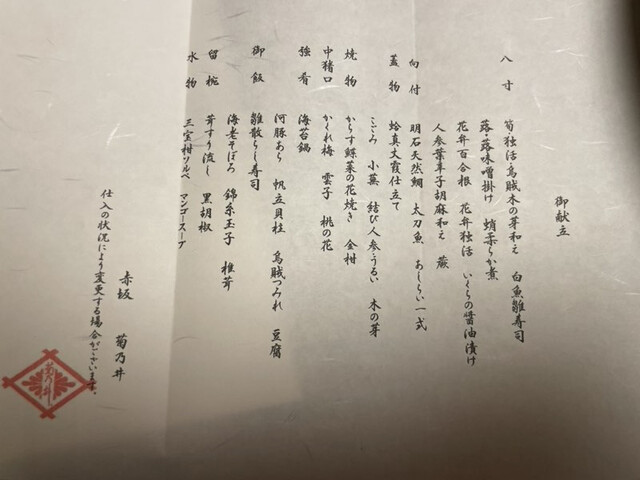 御献立
八寸　筍・独活・烏賊木の芽和え　白魚雛寿司
蕗・蕗味噌掛け　蛸柔らか煮
花弁百合根　花弁独活　いくらの醤油漬け
人参葉辛子胡麻和え　蕨
向付　明石天然鯛　太刀魚　あしらい一式
蓋物　蛤真丈霞仕立て
こごみ　小蕪　結び人参・うるい　木の芽
焼物　からす鰈菜の花焼き　金柑
中猪口　かくれ梅　雲子　桃の花
強肴　海苔鍋
河豚あら　帆立貝柱　烏賊つみれ　豆腐
御飯　雛散らし寿司
海老そぼろ　錦糸玉子　椎茸
留椀　茸すり流し　黒胡椒
水物　三宝柑ソルベ　マンゴースープ
赤坂　菊乃井
仕入の状況により変更する場合がございます。
菊乃井